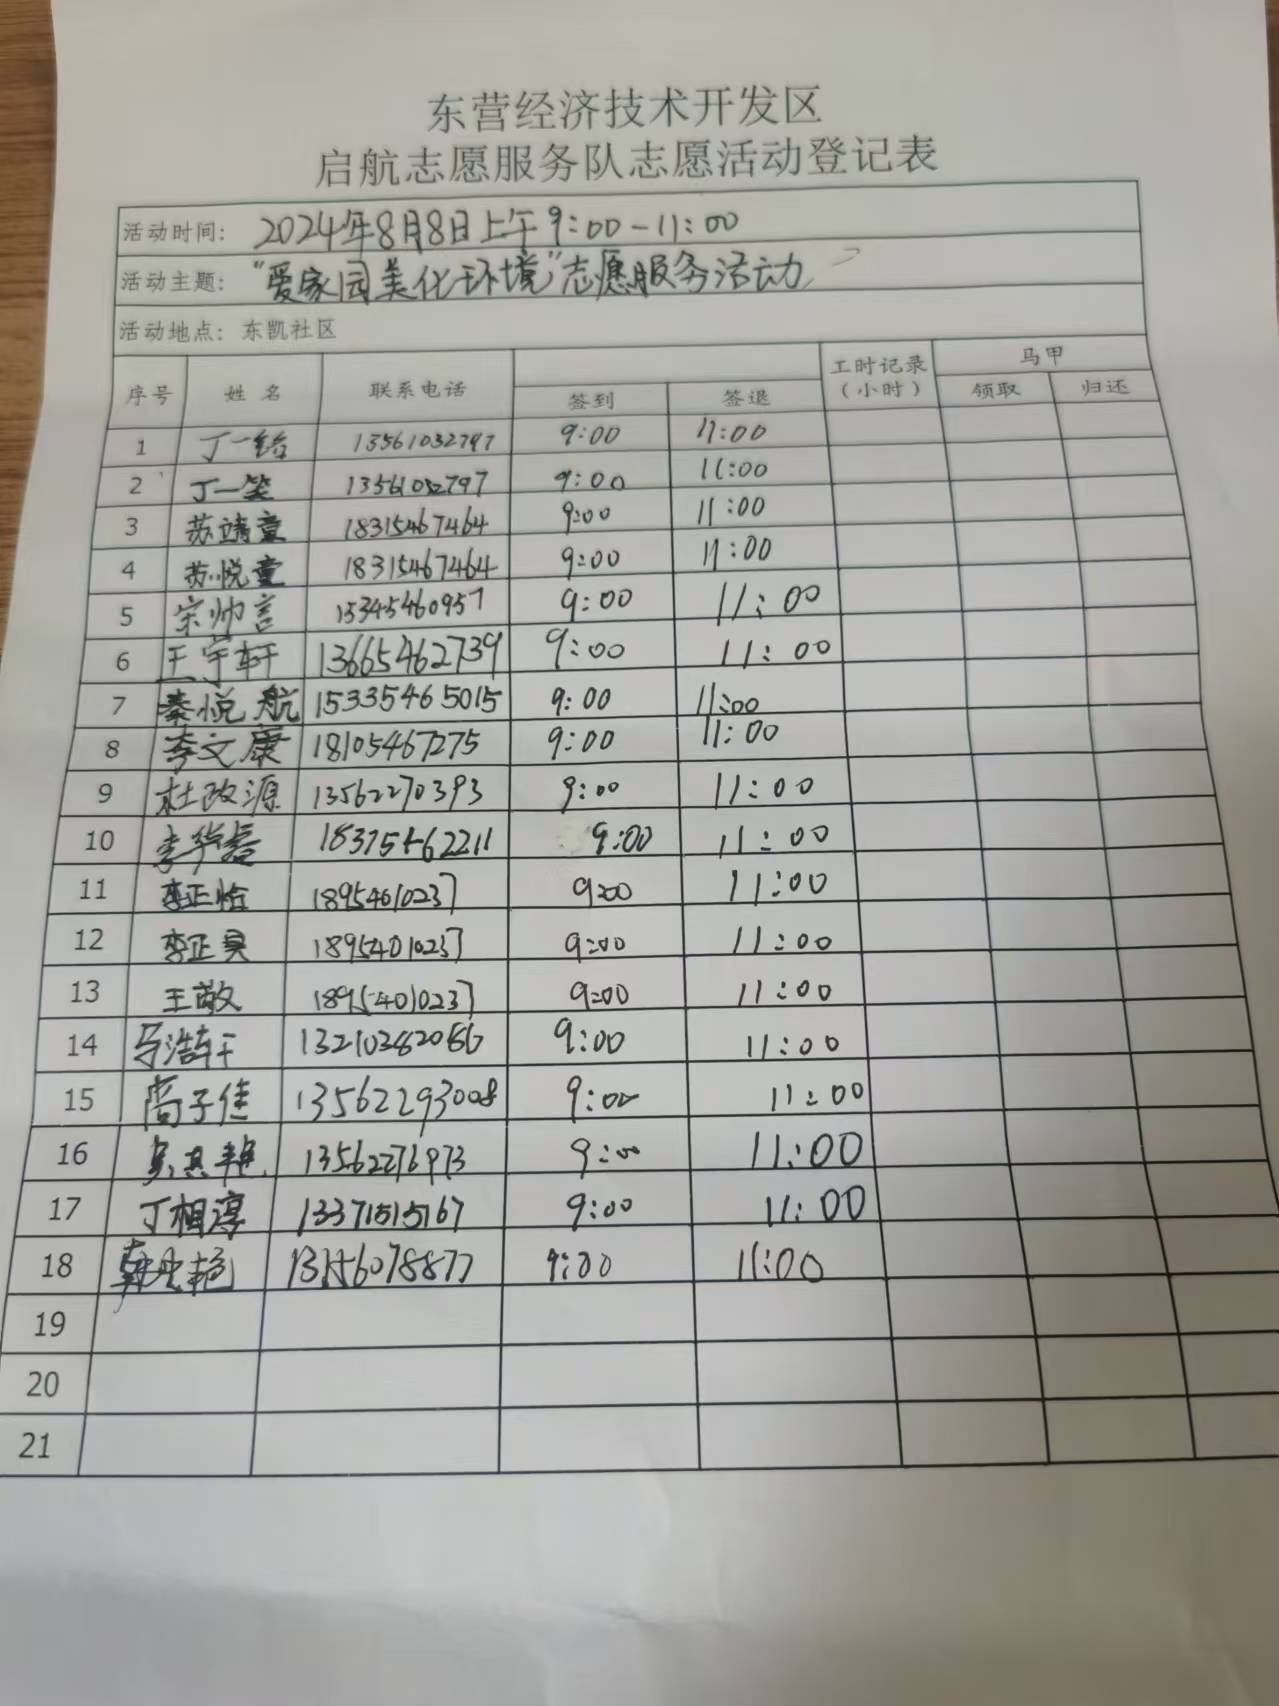 东营经济技术开发区
启航志愿服务队志愿活动登记表
活动时间: 2024年8月8日上午9:00-11:00
活动主题: "爱家园美化环境"志愿服务活动
活动地点: 东凯社区
序号 姓名 联系电话 签到 签退 工时记录(小时) 马甲 领取 归还
1 丁一 13561032797 9:00 11:00
2 丁一笑 13561032797 9:00 11:00
3 苏靖童 18315467464 9:00 11:00
4 苏悦童 18315467464 9:00 11:00
5 宗帅言 15345460957 9:00 11:00
6 王宇轩 13665462739 9:00 11:00
7 秦悦航 15335465015 9:00 11:00
8 李文康 18105467275 9:00 11:00
9 杜改源 13562270393 9:00 11:00
10 李华 9:00 11:00
11 李正怡 18954010237 9:00 11:00
12 李正昊 18954010237 9:00 11:00
13 王敬 18954010237 9:00 11:00
14 马浩轩 9:00 11:00
15 高子佳 13562293008 9:00 11:00
16 13562276973 9:00 11:00
17 丁相淳 13371515167 9:00 11:00
18 13156078877 9:00 11:00
19
20
21